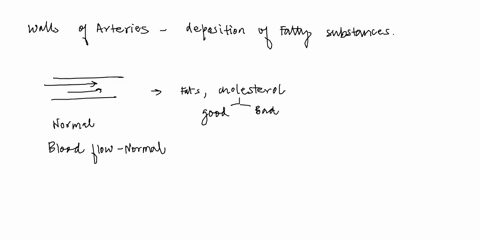 Walls of Arteries - deposition of Fatty substances.
→ Fats, cholesterol
good Bad
Normal
Blood flow - Normal